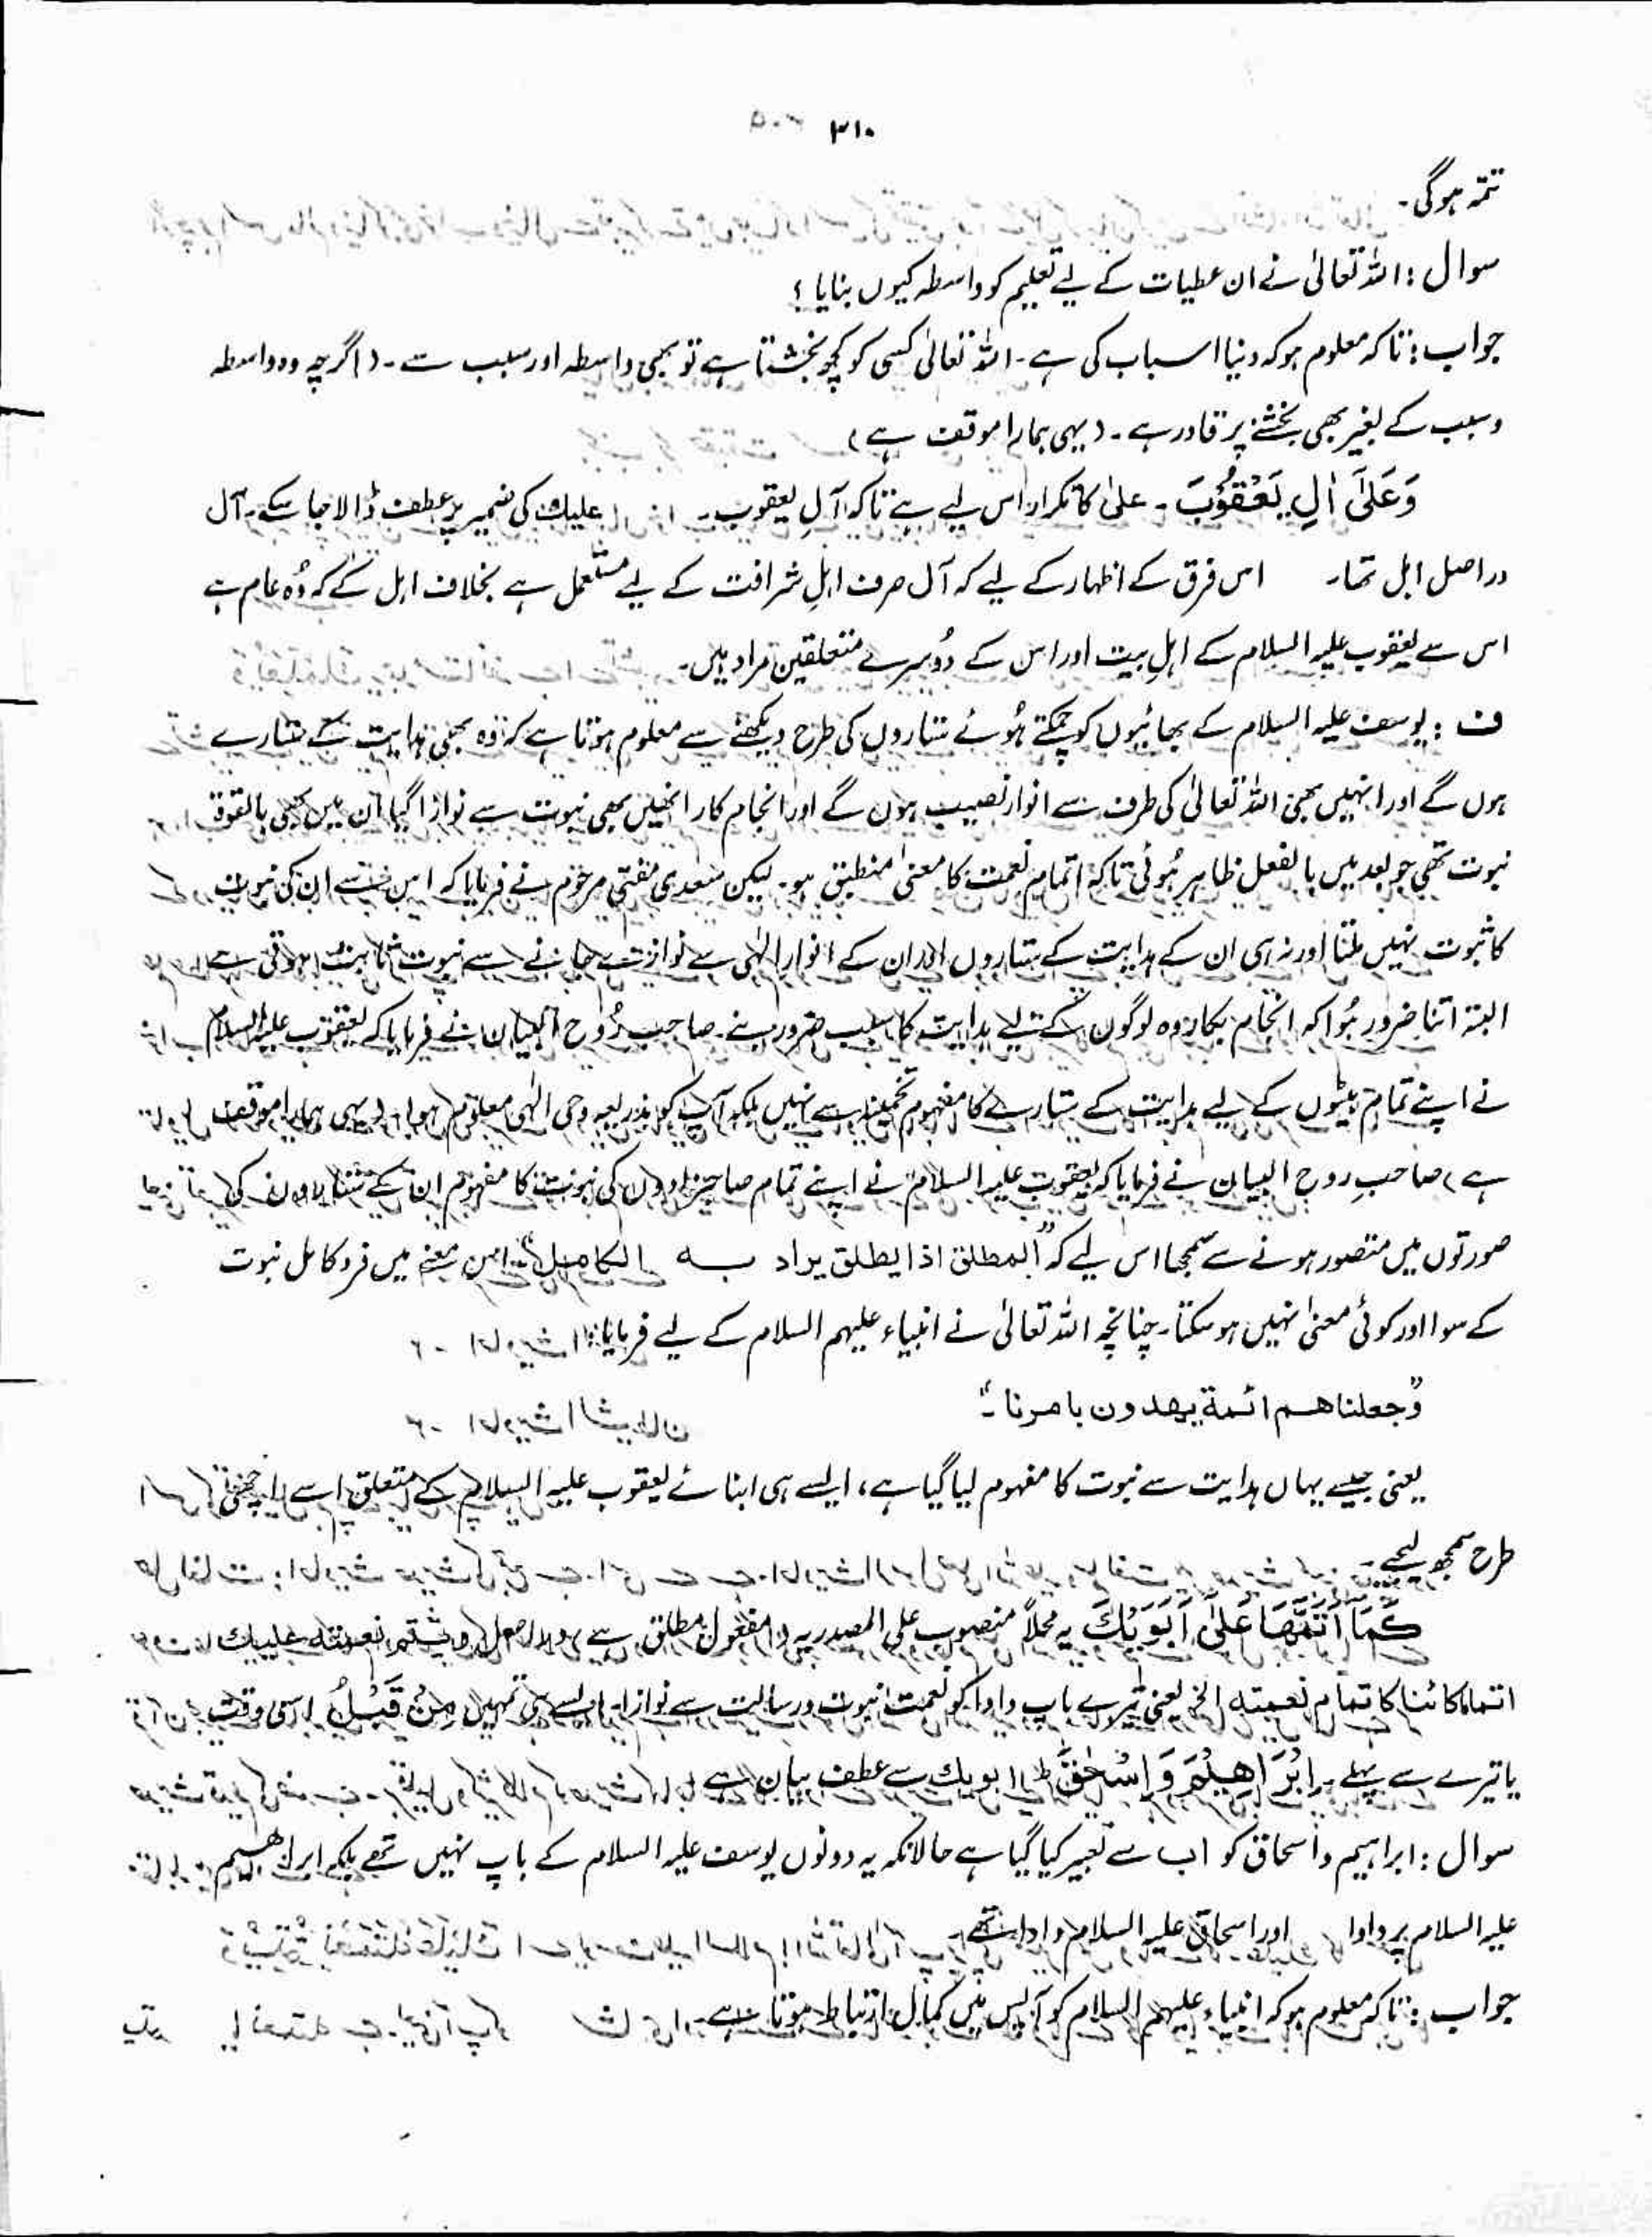 ۳۱۰
تتمہ ہوگی۔
سوال : اللہ تعالیٰ نے ان عطیات کے لیے تعلیم کو واسطہ کیوں بنایا ؟
جواب : تاکہ معلوم ہو کہ دنیا اسباب کی ہے ۔ اللہ تعالیٰ کسی کو کچھ بخشتا ہے تو بھی واسطہ اور سبب سے ۔ ( اگرچہ وہ واسطہ
و سبب کے بغیر بھی بخشنے پر قادر ہے ۔ ( یہی ہمارا موقف ہے )
وَعَلٰٓی اٰلِ یَعْقُوْبَ ۔ علیٰ کا تکرار اس لیے ہے تاکہ آلِ یعقوب ۔ علیك کی ضمیر پر عطف ڈالا جا سکے ۔ آل
دراصل اہل تھا۔ اس فرق کے اظہار کے لیے کہ آل صرف اہلِ شرافت کے لیے مستعمل ہے بخلاف اہل کے کہ وُہ عام ہے
اس سے یعقوب علیہ السلام کے اہلِ بیت اور اس کے دُوسرے متعلقین مراد ہیں۔
ف : یوسف علیہ السلام کے بھائیوں کو چمکتے ہُوئے ستاروں کی طرح دیکھنے سے معلوم ہوتا ہے کہ وہ بھی ہدایت کے ستارے
ہوں گے اور انہیں بھی اللہ تعالیٰ کی طرف سے انوار نصیب ہوں گے اور انجام کار انھیں بھی نبوت سے نوازا گیا ان میں بھی بالقوۃ
نبوت تھی جو بعد میں بالفعل ظاہر ہُوئی تاکہ اتمامِ نعمت کا معنیٰ منطبق ہو۔ لیکن سعدی مفتی مرحوم نے فرمایا کہ اس سے ان کی نبوت
کا ثبوت نہیں ملتا اور نہ ہی ان کے ہدایت کے ستاروں اور ان کے انوارِ الٰہی سے نوازے جانے سے نبوت ثابت ہوتی ہے
البتہ اتنا ضرور ہُوا کہ انجام بکار وہ لوگوں کے لیے ہدایت کا سبب ضرور بنے ۔ صاحبِ رُوح البیان نے فرمایا کہ یعقوب علیہ السلام
نے اپنے تمام بیٹوں کے لیے ہدایت کے ستارے کا مفہوم تخمینہ سے نہیں بلکہ آپ کو بذریعہ وحی الٰہی معلوم ہوا ۔ ( یہی ہمارا موقف
ہے ) صاحبِ روح البیان نے فرمایا کہ یعقوب علیہ السلام نے اپنے تمام صاحبزادوں کی نبوت کا مفہوم ان کے ستاروں کی
صورتوں میں متصور ہونے سے سمجھا اس لیے کہ "المطلق اذا یطلق یراد بہ الکامل" اس معنے میں فرد کامل نبوت
کے سوا اور کوئی معنیٰ نہیں ہو سکتا ۔ چنانچہ اللہ تعالیٰ نے انبیاء علیہم السلام کے لیے فرمایا :
"وجعلناھم ائمة یھدون بامرنا ۔"
یعنی جیسے یہاں ہدایت سے نبوت کا مفہوم لیا گیا ہے ، ایسے ہی ابنائے یعقوب علیہ السلام کے متعلق اسے اچھی
طرح سمجھ لیجے ۔
كَمَآ اَتَمَّهَا عَلٰٓى اَبَوَيْكَ یہ محلاً منصوب علی المصدریہ ( مفعول مطلق ہے ) دراصل ویتم نعمته علیك
اتماما کائنا کا تمام نعمته الخ یعنی تیرے باپ دادا کو نعمت نبوت و رسالت سے نوازا ۔ ایسے ہی تمہیں مِنْ قَبْلُ اس وقت
یا تیرے سے پہلے ۔ اِبْرٰهِيْمَ وَاِسْحٰقَ ط ابویك سے عطف بیان ہے
سوال : ابراہیم و اسحاق کو اب سے تعبیر کیا گیا ہے حالانکہ یہ دونوں یوسف علیہ السلام کے باپ نہیں تھے بلکہ ابراھیم
علیہ السلام پردادا اور اسحاق علیہ السلام دادا تھے ۔
جواب : تاکہ معلوم ہو کہ انبیاء علیہم السلام کو آپس میں کمال ارتباط ہوتا ہے ۔